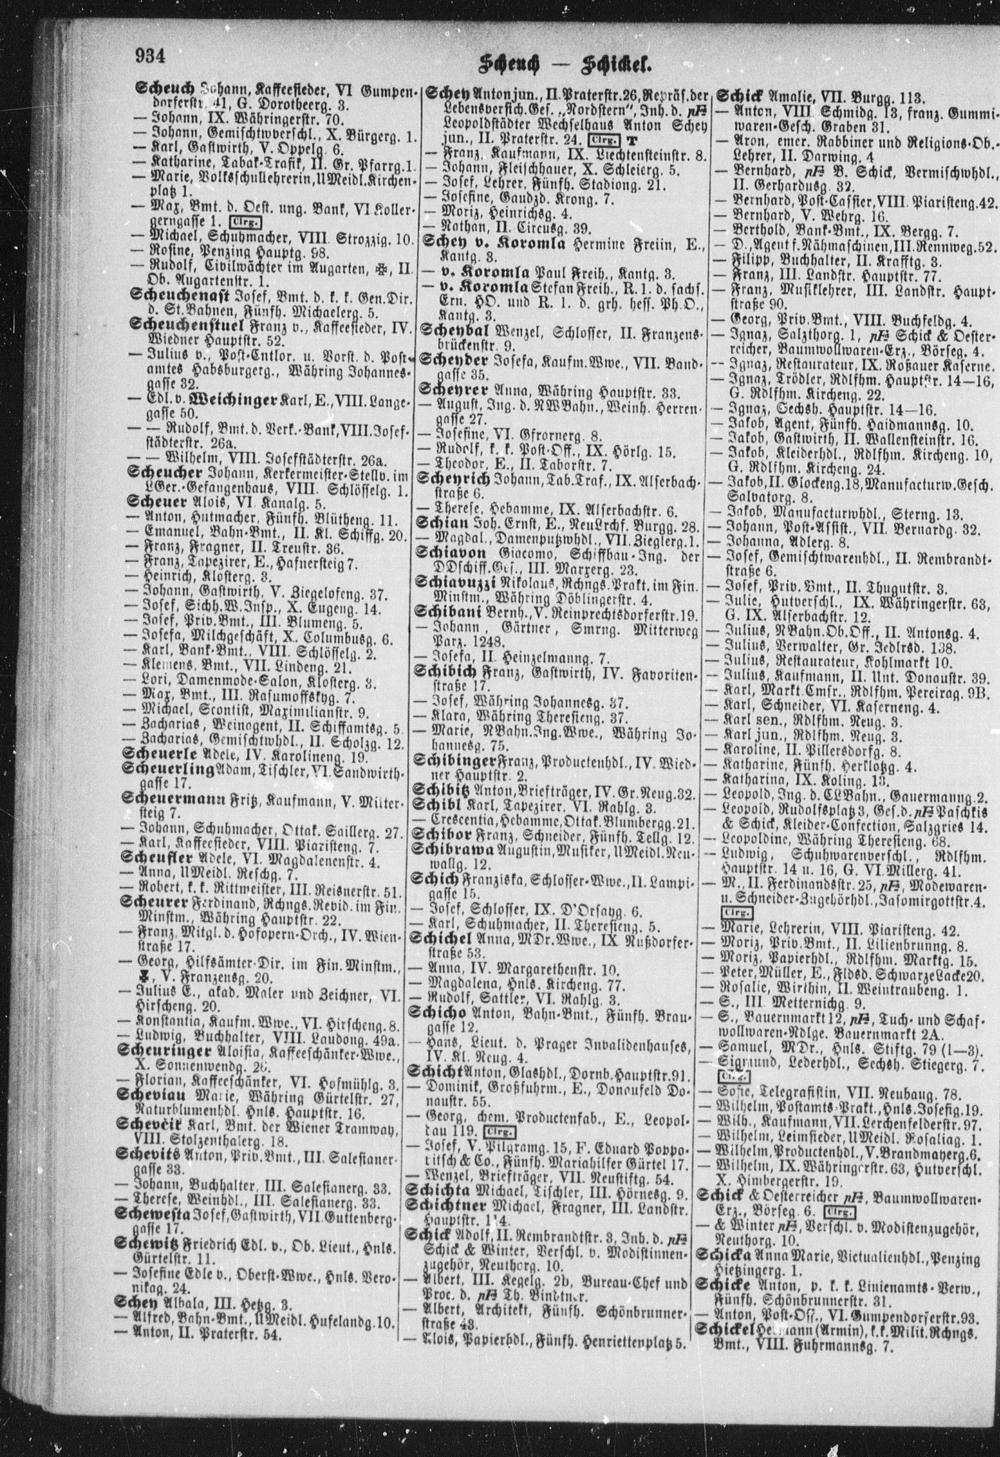 934
Scheuch — Schickel.
Scheuch Johann, Kaffeesieder, VI Gumpen-
dorferstr. 41, G. Dorotheerg. 3.
— Johann, IX. Währingerstr. 70.
— Johann, Gemischtwverschl., X. Bürgerg. 1.
— Karl, Gastwirth, V. Oppelg. 6.
— Katharine, Tabak-Trafik, II. Gr. Pfarrg. 1.
— Marie, Volksschullehrerin, U Meidl. Kirchen-
platz 1.
— Max, Bmt. d. Oest. ung. Bank, VI Koller-
gerngasse 1. Clrg.
— Michael, Schuhmacher, VIII. Strozzig. 10.
— Rosine, Penzing Hauptg. 98.
— Rudolf, Civilwächter im Augarten, ✠, II.
Ob. Augartenstr. 1.
Scheuchenast Josef, Bmt. d. k. k. Gen.Dir.
d. St.Bahnen, Fünfh. Michaelerg. 5.
Scheuchenstuel Franz v., Kaffeesieder, IV.
Wiedner Hauptstr. 52.
— Julius v., Post-Entlor. u. Vorst. d. Post-
amtes Habsburgerg., Währing Johannes-
gasse 32.
— Edl. v. Weichinger Karl, E., VIII. Lange-
gasse 50.
— — Rudolf, Bmt. d. Verk.-Bank, VIII. Josef-
städterstr. 26a.
— — Wilhelm, VIII. Josefstädterstr. 26a.
Scheucher Johann, Kerkermeister-Stellv. im
LGer.-Gefangenhaus, VIII. Schlösselg. 1.
Scheuer Alois, VI. Kanalg. 5.
— Anton, Hutmacher, Fünfh. Blütheng. 11.
— Emanuel, Bahn-Bmt., II. Kl. Schiffg. 20.
— Franz, Fragner, II. Treustr. 36.
— Franz, Tapezirer, E., Hafnersteig 7.
— Heinrich, Klosterg. 3.
— Johann, Gastwirth, V. Ziegelofeng. 37.
— Josef, Sichh.W.Insp., X. Eugeng. 14.
— Josef, Priv.Bmt., III. Blumeng. 5.
— Josefa, Milchgeschäft, X. Columbusg. 6.
— Karl, Bank-Bmt., VIII. Schlösselg. 2.
— Klemens, Bmt., VII. Lindeng. 21.
— Lori, Damenmode-Salon, Klosterg. 3.
— Max, Bmt., III. Rasumoffskyg. 7.
— Michael, Scontist, Maximilianstr. 9.
— Zacharias, Weinagent, II. Schiffamtsg. 5
— Zacharias, Gemischtwhdl., II. Scholzg. 12.
Scheuerle Adele, IV. Karolineng. 19.
Scheuerling Adam, Tischler, VI. Sandwirth-
gasse 17.
Scheuermann Fritz, Kaufmann, V. Mitter-
steig 7.
— Johann, Schuhmacher, Ottak. Saillerg. 27.
— Karl, Kaffeesieder, VIII. Piaristeng. 7.
Scheufler Adele, VI. Magdalenenstr. 4.
— Anna, U Meidl. Reschg. 7.
— Robert, k. k. Rittmeister, III. Reisnerstr. 51.
Scheurer Ferdinand, Rchngs.Revid. im Fin.
Minstm., Währing Hauptstr. 22.
— Franz, Mitgl. d. Hofopern-Orch., IV. Wien-
straße 17.
— Georg, Hilfsämter-Dir. im Fin. Minstm.,
V. Franzensg. 20.
— Julius E., akad. Maler und Zeichner, VI.
Hirscheng. 20.
— Konstantia, Kaufm. Wwe., VI. Hirscheng. 8.
— Ludwig, Buchhalter, VIII. Laudong. 49a.
Scheuringer Aloisia, Kaffeeschänker-Wwe.,
X. Sonnenwendg. 26.
— Florian, Kaffeeschänker, VI. Hofmühlg. 3.
Scheviau Marie, Währing Gürtelstr. 27,
Naturblumenhdl. Hnls. Hauptstr. 16.
Schevčik Karl, Bmt. der Wiener Tramway,
VIII. Stolzenthalerg. 18.
Schevits Anton, Priv.Bmt., III. Salesianer-
gasse 33.
— Johann, Buchhalter, III. Salesianerg. 33.
— Therese, Weinhdl., III. Salesianerg. 33.
Schewesta Josef, Gastwirth, VII. Guttenberg-
gasse 17.
Schewitz Friedrich Edl. v., Ob. Lieut., Hnls.
Gürtelstr. 11.
— Josefine Edle v., Oberst-Wwe., Hnls. Vero-
nikag. 24.
Schey Albala, III. Hetzg. 3.
— Alfred, Bahn-Bmt., U Meidl. Hufelandg. 10.
— Anton, II. Praterstr. 54.
Schey Anton jun., II. Praterstr. 26, Repräs. der
Lebensversich.Ges. „Nordstern", Inh. d. prot.
Leopoldstädter Wechselhaus Anton Schey
jun., II. Praterstr. 24. Clrg. T
— Franz, Kaufmann, IX. Liechtensteinstr. 8.
— Johann, Fleischhauer, X. Schleierg. 5.
— Josef, Lehrer, Fünfh. Stadiong. 21.
— Josefine, Gaudzd. Krong. 7.
— Moriz, Heinrichsg. 4.
— Nathan, II. Circusg. 39.
Schey v. Koromla Hermine Freiin, E.,
Kantg. 3.
— v. Koromla Paul Freih., Kantg. 3.
— v. Koromla Stefan Freih., R. 1. d. sachs.
Ern. HO. und R. 1. d. grh. hess. Ph.O.,
Kantg. 3.
Scheybal Wenzel, Schlosser, II. Franzens-
brückenstr. 9.
Scheyder Josefa, Kaufm. Wwe., VII. Band-
gasse 35.
Scheyrer Anna, Währing Hauptstr. 33.
— August, Ing. d. NWBahn., Weinh. Herren-
gasse 27.
— Josefine, VI. Gfrornerg. 8.
— Rudolf, k. k. Post-Off., IX. Hörlg. 15.
— Theodor, E., II. Taborstr. 7.
Scheyrich Johann, Tab.Traf., IX. Alserbach-
straße 6.
— Therese, Hebamme, IX. Alserbachstr. 6.
Schian Joh. Ernst, E., NeuLrchf. Burgg. 28.
— Magdal., Damenputzwhdl., VII. Zieglerg. 1.
Schiavon Giacomo, Schiffbau-Ing. der
DDschiff.Ges., III. Marxerg. 23.
Schiavuzzi Nikolaus, Rchngs.Prakt. im Fin.
Minstm., Währing Döblingerstr. 4.
Schibani Bernh., V. Reinprechtsdorferstr. 19.
— Johann, Gärtner, Smrng. Mitterweg
Parz. 1248.
— Josefa, II. Heinzelmanng. 7.
Schibich Franz, Gastwirth, IV. Favoriten-
straße 17.
— Josef, Währing Johannesg. 37.
— Klara, Währing Theresieng. 37.
— Marie, NBahn.Ing.Wwe., Währing Jo-
hannesg. 75.
Schibinger Franz, Productenhdl., IV. Wied-
ner Hauptstr. 2.
Schibitz Anton, Briefträger, IV. Gr. Neug. 32.
Schibl Karl, Tapezirer, VI. Rahlg. 3.
— Crescentia, Hebamme, Ottak. Blumbergg. 21.
Schibor Franz, Schneider, Fünfh. Tellg. 12.
Schibrawa Augustin, Musiker, U Meidl. Neu-
wallg. 12.
Schich Franziska, Schlosser-Wwe., II. Lampi-
gasse 15.
— Josef, Schlosser, IX. D'Orsayg. 6.
— Karl, Schuhmacher, II. Theresieng. 5.
Schichel Anna, MDr.Wwe., IX Nußdorfer-
straße 53.
— Anna, IV. Margarethenstr. 10.
— Magdalena, Hnls. Kircheng. 77.
— Rudolf, Sattler, VI. Rahlg. 3.
Schicho Anton, Bahn-Bmt., Fünfh. Brau-
gasse 12.
— Hans, Lieut. d. Prager Invalidenhauses,
IV. Kl. Neug. 4.
Schicht Anton, Glashdl., Dornb. Hauptstr. 91.
— Dominik, Großfuhrm., E., Donaufeld Do-
naustr. 55.
— Georg, chem. Productenfab., E., Leopol-
dau 119. Clrg.
— Josef, V. Pilgramg. 15, F. Eduard Poppo-
vitsch & Co., Fünfh. Mariahilfer Gürtel 17.
— Wenzel, Briefträger, VII. Neustiftg. 54.
Schichta Michael, Tischler, III. Hörnesg. 9.
Schichtner Michael, Fragner, III. Landstr.
Hauptstr. 114.
Schick Adolf, II. Rembrandtstr. 3, Inh. d. prot.
Schick & Winter, Verschl. v. Modistinnen-
zugehör, Neuthorg. 10.
— Albert, III. Kegelg. 2b, Bureau-Chef und
Proc. d. prot. Th. Bindtner.
— Albert, Architekt, Fünfh. Schönbrunner-
straße 43.
— Alois, Papierhdl., Fünfh. Henriettenplatz 5.
Schick Amalie, VII. Burgg. 113.
— Anton, VIII. Schmidg. 13, franz. Gummi-
waren-Gesch. Graben 31.
— Aron, emer. Rabbiner und Religions-Ob.-
Lehrer, II. Darwing. 4
— Bernhard, prot. B. Schick, Vermischwhdl.,
II. Gerhardusg. 32.
— Bernhard, Post-Cassier, VIII. Piaristeng. 42.
— Bernhard, V. Wehrg. 16.
— Berthold, Bank-Bmt., IX. Bergg. 7.
— D., Agent f. Nähmaschinen, III. Rennweg. 52.
— Filipp, Buchhalter, II. Krafftg. 3.
— Franz, III. Landstr. Hauptstr. 77.
— Franz, Musiklehrer, III. Landstr. Haupt-
straße 90.
— Georg, Priv.Bmt., VIII. Buchfeldg. 4.
— Ignaz, Salzthorg. 1, prot. Schick & Oester-
reicher, Baumwollwaren-Erz., Börseg. 4.
— Ignaz, Restaurateur, IX. Roßauer Kaserne.
— Ignaz, Trödler, Rdlfhm. Hauptstr. 14—16,
G. Rdlfhm. Kircheng. 22.
— Ignaz, Sechsh. Hauptstr. 14—16.
— Jakob, Agent, Fünfh. Haidmannsg. 10.
— Jakob, Gastwirth, II. Wallensteinstr. 16.
— Jakob, Kleiderhdl., Rdlfhm. Kircheng. 10,
G. Rdlfhm. Kircheng. 24.
— Jakob, II. Glockeng. 18, Manufacturw.Gesch.
Salvatorg. 8.
— Jakob, Manufacturwhdl., Sterng. 13.
— Johann, Post-Assist., VII. Bernardg. 32.
— Johanna, Adlerg. 8.
— Josef, Gemischtwarenhdl., II. Rembrandt-
straße 6.
— Josef, Priv.Bmt., II. Thugutstr. 3.
— Julie, Hutverschl., IX. Währingerstr. 63,
G. IX. Alserbachstr. 12.
— Julius, NBahn.Ob.Off., II. Antonsg. 4.
— Julius, Verwalter, Gr. Jedlrsd. 138.
— Julius, Restaurateur, Kohlmarkt 10.
— Julius, Kaufmann, II. Unt. Donaustr. 39.
— Karl, Markt.Cmsr., Rdlfhm. Pereirag. 9B.
— Karl, Schneider, VI. Kaserneng. 4.
— Karl sen., Rdlfhm. Neug. 3.
— Karl jun., Rdlfhm. Neug. 3.
— Karoline, II. Pillersdorfg. 8.
— Katharine, Fünfh. Herklotzg. 4.
— Katharina, IX. Koling. 13.
— Leopold, Ing. d. CLBahn., Gauermanng. 2.
— Leopold, Rudolfsplatz 3, Ges. d. prot. Paschkis
& Schick, Kleider-Confection, Salzgries 14.
— Leopoldine, Währing Theresieng. 68.
— Ludwig, Schuhwarenverschl., Rdlfhm.
Hauptstr. 14 u. 16, G. VI. Millerg. 41.
— M., II. Ferdinandsstr. 25, prot. Modewaren-
u. Schneider-Zugehörhdl., Jasomirgottstr. 4.
Clrg.
— Marie, Lehrerin, VIII. Piaristeng. 42.
— Moriz, Priv.Bmt., II. Lilienbrunng. 8.
— Moriz, Papierhdl., Rdlfhm. Marktg. 15.
— Peter, Müller, E., Fldsd. Schwarze Lacke 20.
— Rosalie, Wirthin, II. Weintraubeng. 1.
— S., III. Metternichg. 9.
— S., Bauernmarkt 12, prot. Tuch- und Schaf-
wollwaren-Ndlge. Bauernmarkt 2A.
— Samuel, MDr., Hnls. Stiftg. 79 (1—3).
— Sigmund, Lederhdl., Sechsh. Stiegerg. 7.
Clrg.
— Sofie, Telegrafistin, VII. Neubaug. 78.
— Wilhelm, Postamts-Prakt., Hnls. Josefig. 19.
— Wilh., Kaufmann, VII. Lerchenfelderstr. 97.
— Wilhelm, Leimsieder, U Meidl. Rosaliag. 1.
— Wilhelm, Productenhdl., V. Brandmayerg. 6.
— Wilhelm, IX. Währingerstr. 63, Hutverschl.
X. Himbergerstr. 19.
Schick & Oesterreicher prot. Baumwollwaren-
Erz., Börseg. 6. Clrg.
— & Winter prot. Verschl. v. Modistenzugehör,
Neuthorg. 10.
Schicka Anna Marie, Victualienhdl., Penzing
Hietzingerg. 1.
Schicke Anton, p. k. k. Linienamts-Verw.,
Fünfh. Schönbrunnerstr. 31.
— Anton, Post-Off., VI. Gumpendorferstr. 93.
Schickel Hermann (Armin), k. k. Milit. Rchngs.
Bmt., VIII. Fuhrmannsg. 7.